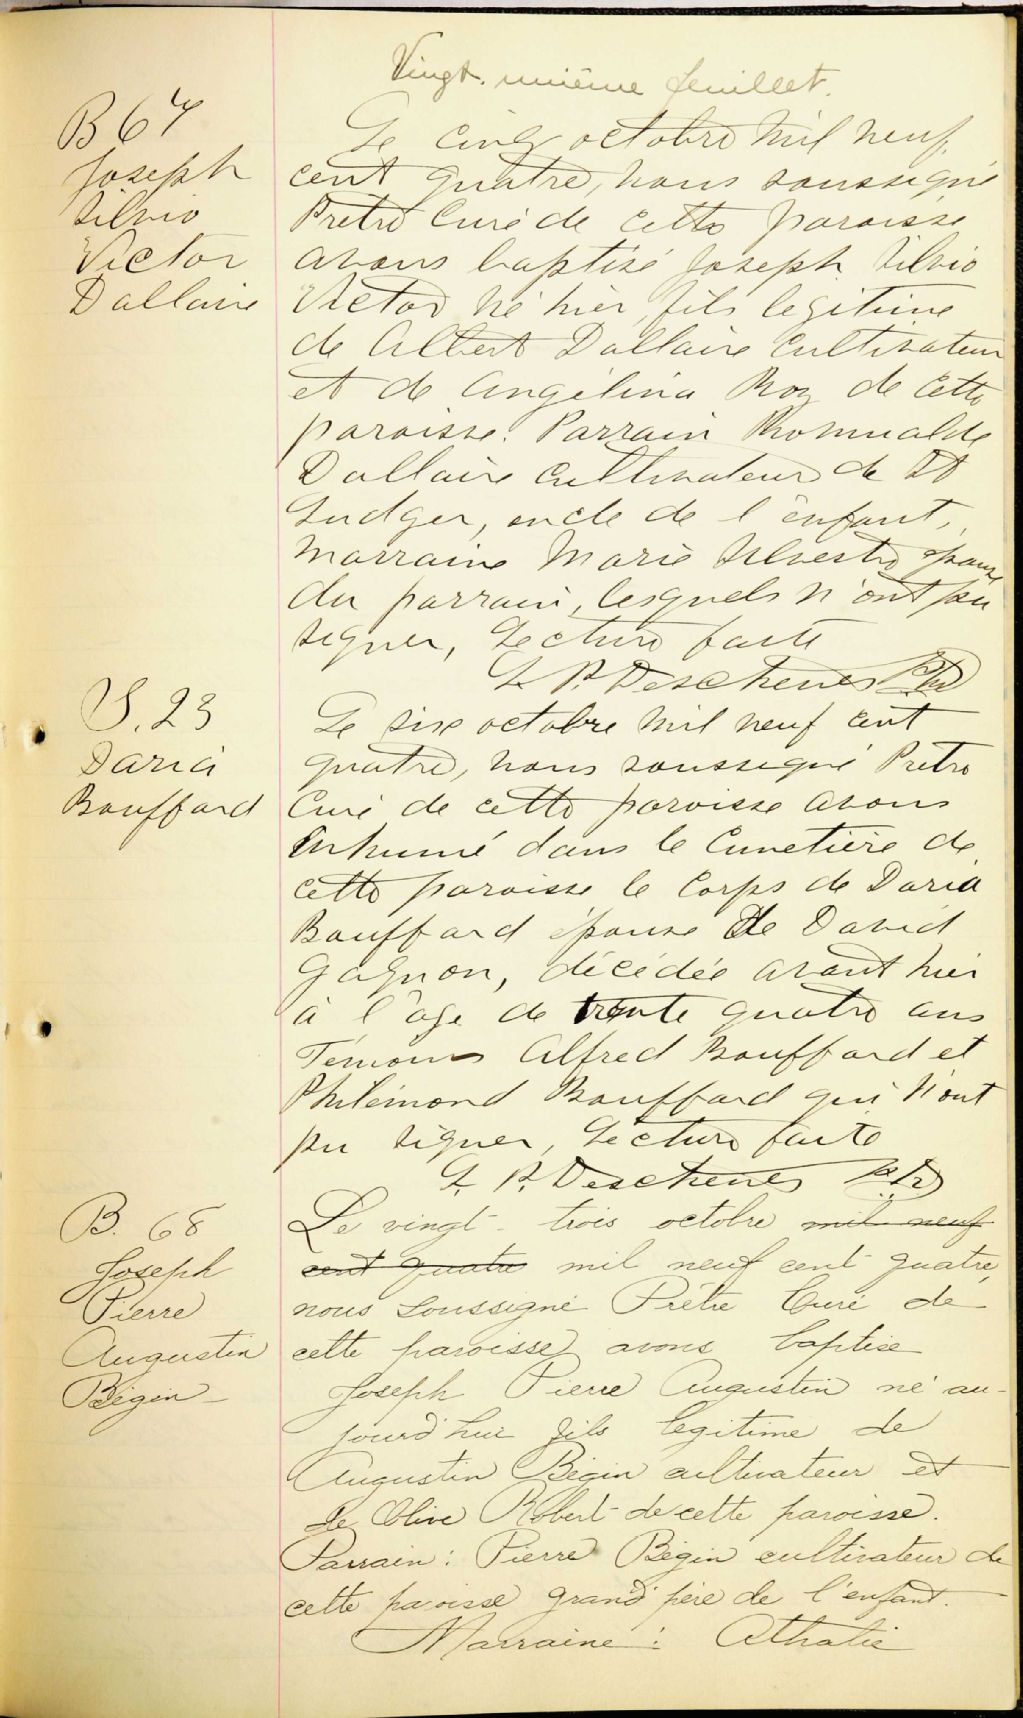 Vingt-unième feuillet.
B 67
Joseph
Silvio
Victor
Dallaire
Le cinq octobre mil neuf
cent quatre, nous soussigné
Prêtre Curé de cette paroisse
avons baptisé Joseph Silvio
Victor né hier, fils légitime
de Albert Dallaire cultivateur
et de Angélina Roy de cette
paroisse. Parrain Romualde
Dallaire cultivateur de St
Ludger, oncle de l'enfant,
Marraine Marie Silvestre épouse
du parrain, lesquels n'ont pu
signer, Lecture faite
L. P. Deschenes Ptre
S. 23
Daria
Bouffard
Le six octobre mil neuf cent
quatre, nous soussigné Prêtre
Curé de cette paroisse avons
inhumé dans le Cimetière de
cette paroisse le corps de Daria
Bouffard épouse de David
Gagnon, décédée avant hier
à l'âge de trente quatre ans
Témoins Alfred Bouffard et
Philémond Bouffard qui n'ont
pu signer, Lecture faite
L. P. Deschenes ptre
B. 68
Joseph
Pierre
Augustin
Bégin
Le vingt-trois octobre mil neuf
cent quatre mil neuf cent quatre,
nous soussigné Prêtre Curé de
cette paroisse avons baptisé
Joseph Pierre Augustin né au-
jourd'hui fils légitime de
Augustin Bégin cultivateur et
de Olive Robert de cette paroisse.
Parrain: Pierre Bégin cultivateur de
cette paroisse grand'père de l'enfant.
Marraine: Athalie